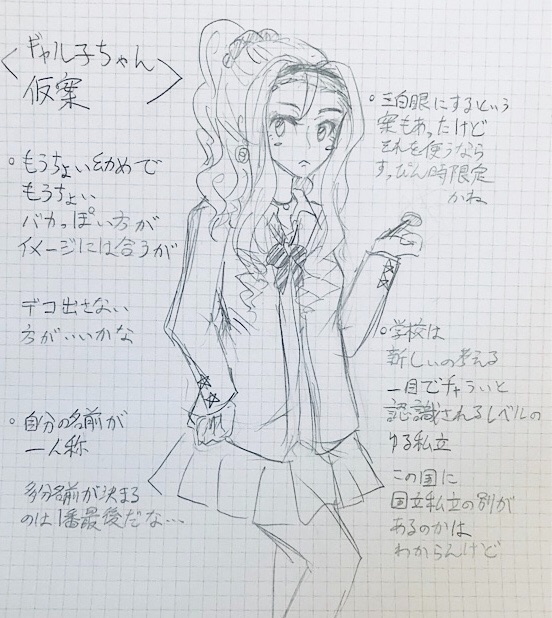 ギャル子ちゃん
仮案
。もうちょい幼めで
もうちょい
バカっぽい方が
イメージには合うが
デコ出さない
方がいいかな
。自分の名前が
一人称
多分名前が決まる
のは1番最後だな…
。三白眼にするという
案もあったけど
それを使うなら
すっぴん時限定
かね
。学校は
新しいの考える
一目でチャラいと
認識されるレベルの
ゆる私立
この国に
国立私立の別が
あるのかは
わからんけど